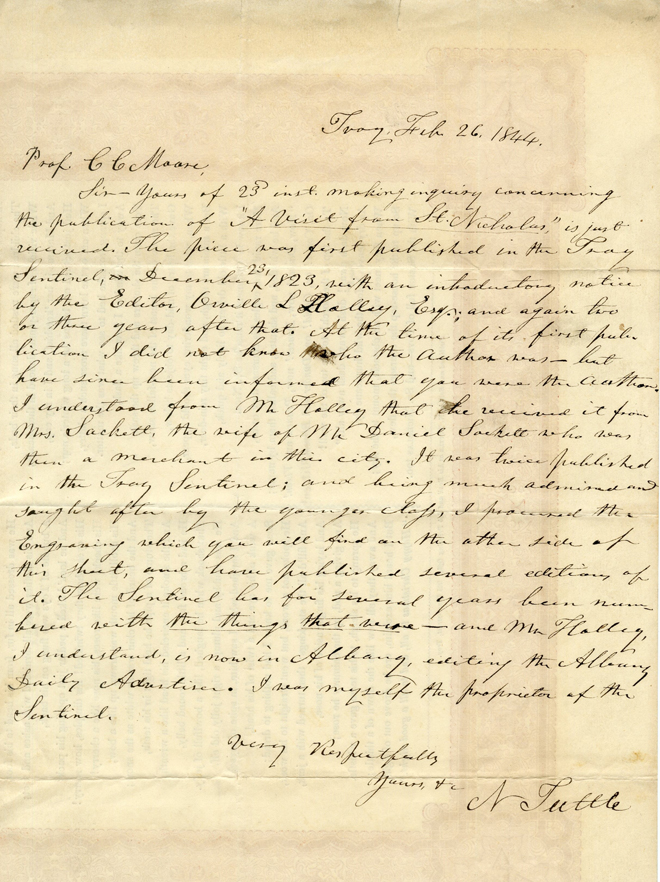 Troy, Feb. 26. 1844.
Prof. C C Moore,
Sir— Yours of 23d inst. making inquiry concerning
the publication of "A Visit from St. Nicholas," is just
received. The piece was first published in the Troy
Sentinel, December 23, 1823, with an introductory notice
by the Editor, Orville L Holley, Esq; and again two
or three years after that. At the time of its first pub-
lication I did not know who the Author was— but
have since been informed that you were the author.
I understood from Mr Holley that he received it from
Mrs. Sackett, the wife of Mr Daniel Sackett who was
then a merchant in this city. It was twice published
in the Troy Sentinel; and being much admired and
sought after by the younger class, I procured the
Engraving which you will find on the other side of
this sheet, and have published several editions of
it. The Sentinel has for several years been num-
bered with the things that were— and Mr Holley,
I understand, is now in Albany, editing the Albany
Daily Advertiser. I was myself the proprietor of the
Sentinel.
Very Respectfully
Yours, &c
N Tuttle